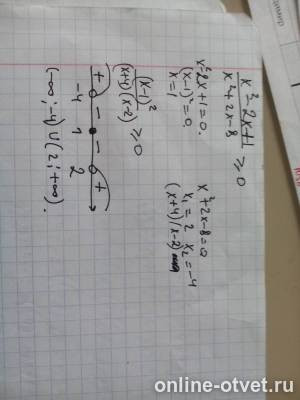 x² - 2x + 1
x² + 2x - 8
≥ 0
x² - 2x + 1 = 0.
(x-1)² = 0
x = 1
x² + 2x - 8 = 0
x₁ = 2 x₂ = -4
(x+4)(x-2)
(x-1)²
(x+4)(x-2)
≥ 0
+ - - +
-4 1 2
(-∞; -4) ∪ (2; +∞).
online-otvet.ru